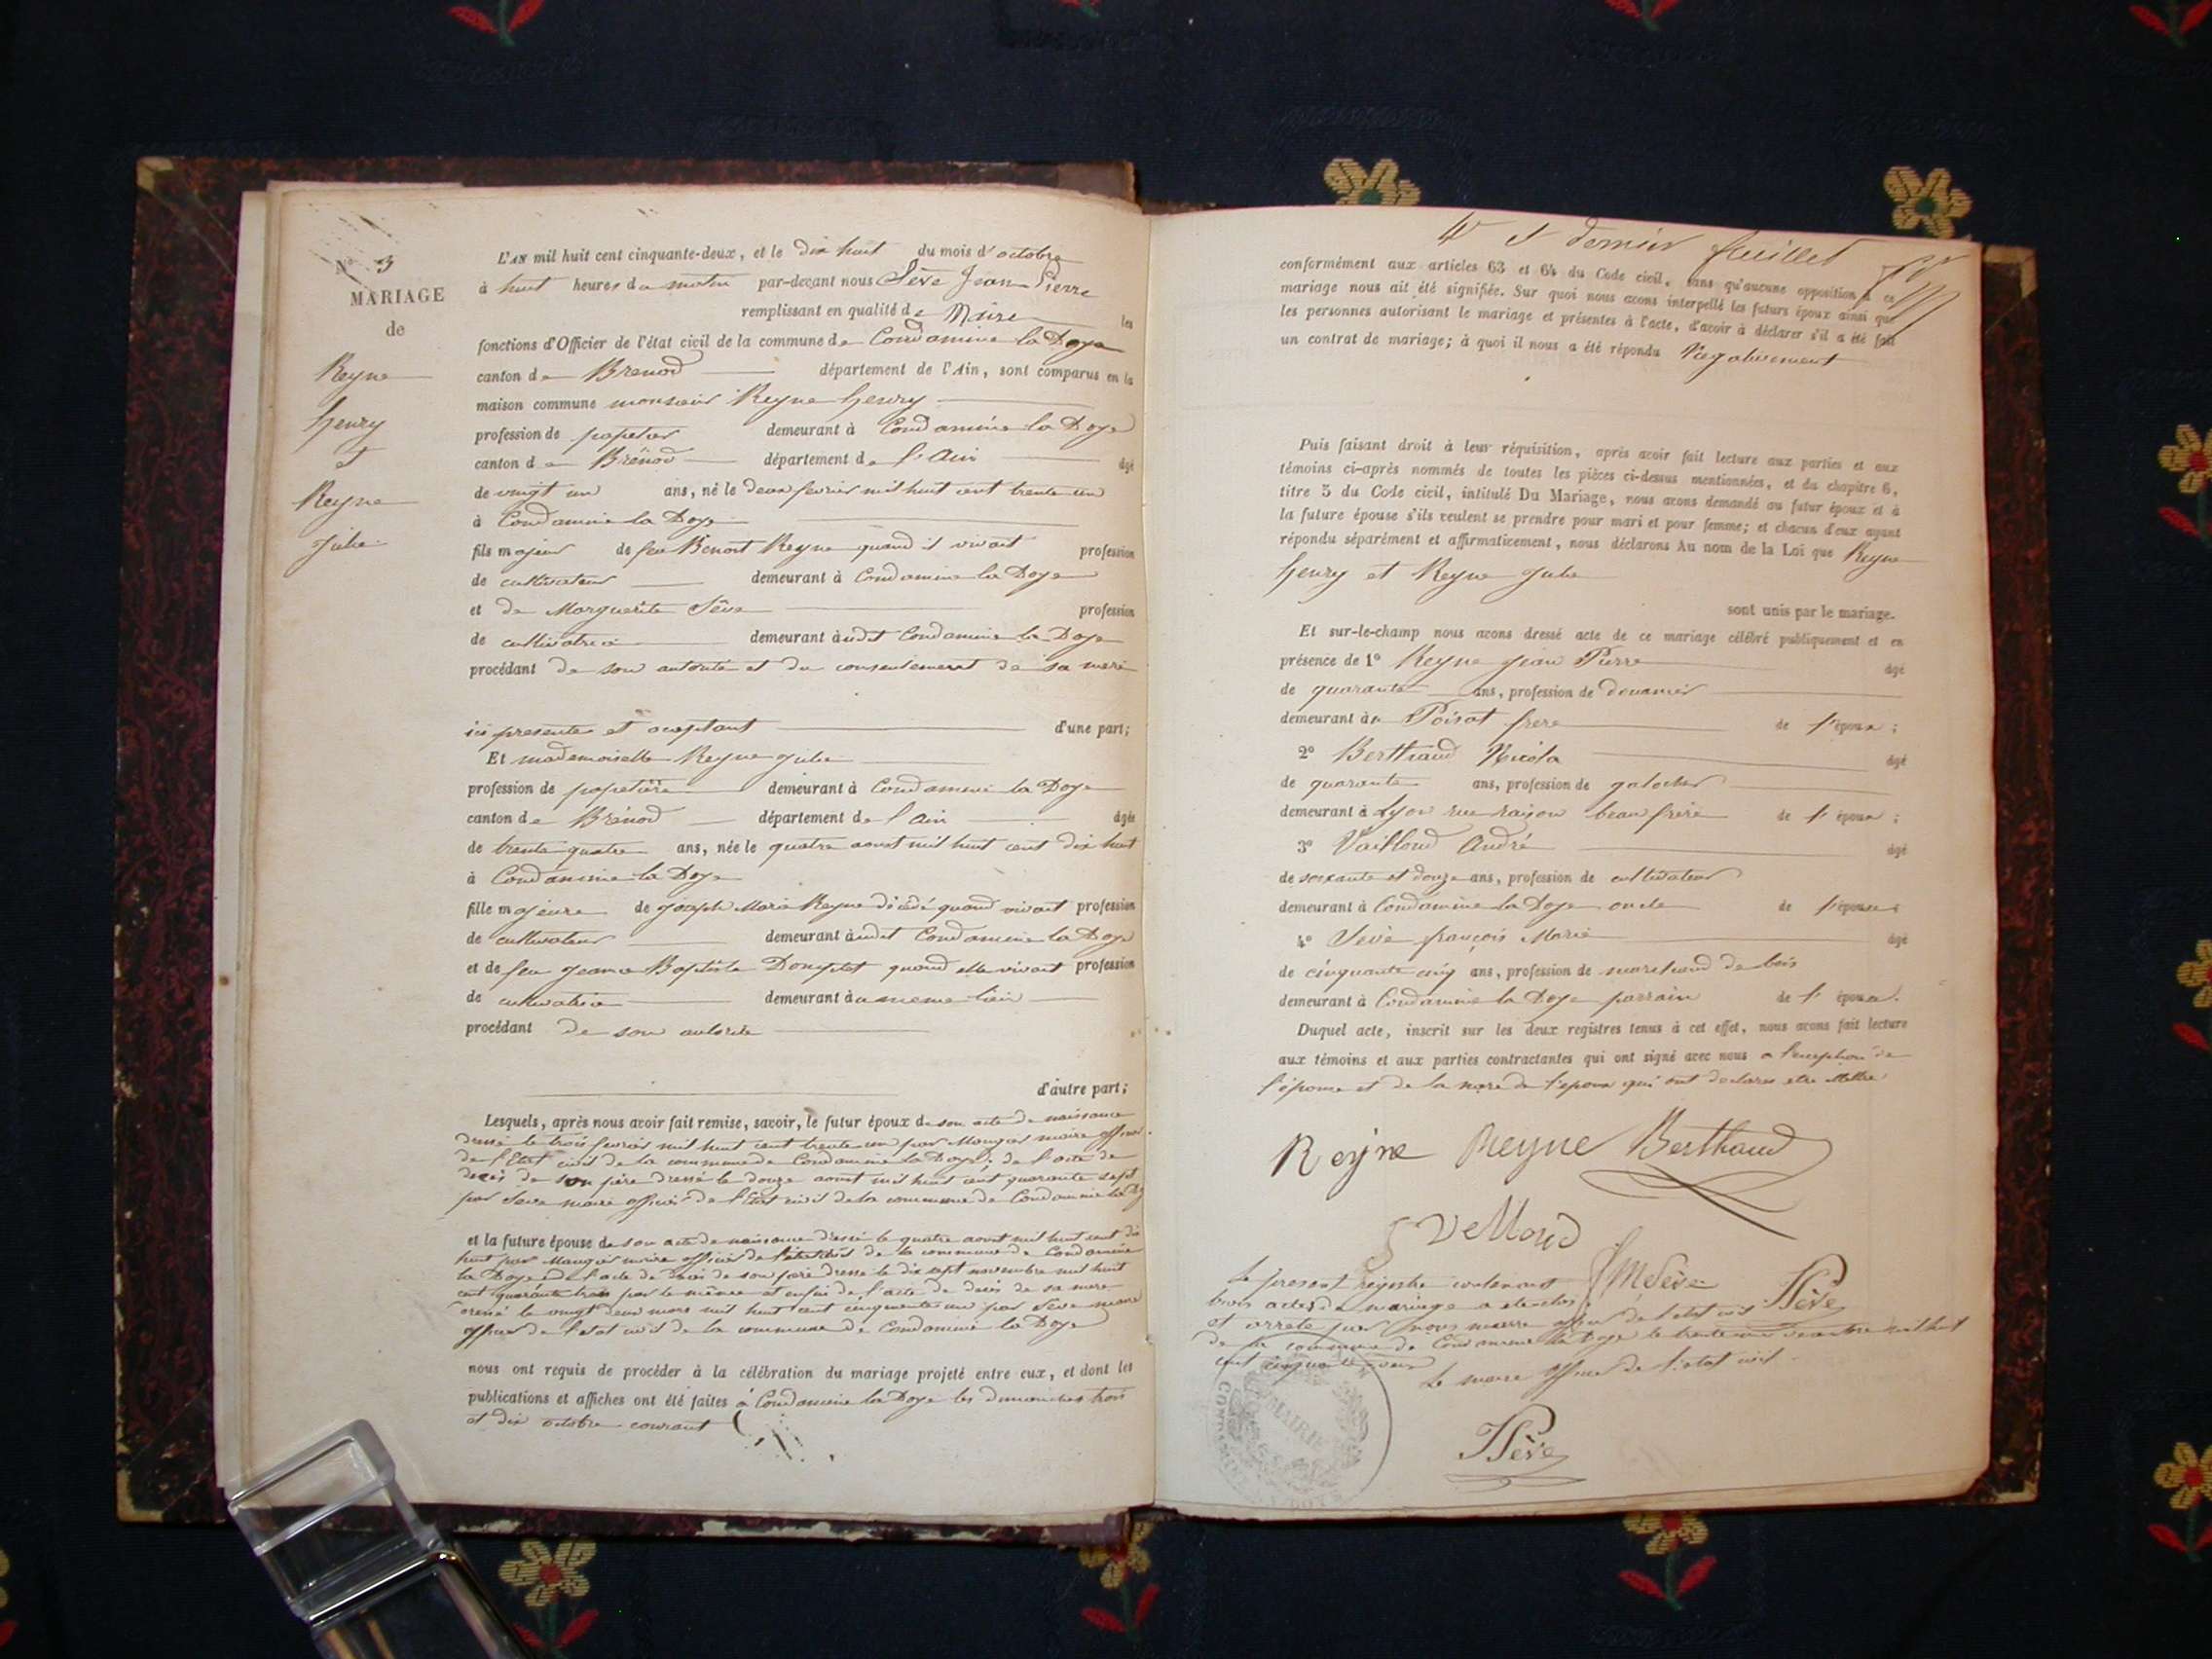 N° 3
MARIAGE
de
Reyne
henry
et
Reyne
Julie
L'AN mil huit cent cinquante-deux, et le dix huit du mois d'octobre
à huit heures du matin par-devant nous Sève Jean Pierre
remplissant en qualité de Maire les
fonctions d'Officier de l'état civil de la commune de Condamine la Doye
canton de Brenod département de l'Ain, sont comparus en la
maison commune monsieur Reyne henry
profession de papetier demeurant à Condamine la Doye
canton de Brénod département de l'Ain âgé
de vingt un ans, né le deux fevrier mil huit cent trente un
à Condamine la Doye
fils majeur de feu Benoit Reyne quand il vivait profession
de cultivateur demeurant à Condamine la Doye
et de Marguerite Sève profession
de cultivatrice demeurant à udit Condamine la Doye
procédant de son autorité et du consentement de sa mere
ici presente et aceptant d'une part;
Et mademoiselle Reyne Julie
profession de papetière demeurant à Condamine la Doye
canton de Brénod département de l'Ain âgée
de trente quatre ans, née le quatre aoust mil huit cent dix huit
à Condamine la Doye
fille majeure de Joseph Marie Reyne décédé quand vivait profession
de cultivateur demeurant à udit Condamine la Doye
et de feu Jeanne Baptiste quand elle vivait profession
de cultivatrice demeurant à u meme lieu
procédant de son autorité
d'autre part;
Lesquels, après nous avoir fait remise, savoir, le futur époux de son acte de naissance
dressé le trois fevrier mil huit cent trente un par Mangier maire officier
de l'Etat civil de la commune de Condamine la Doye; de l'acte de
decès de son père dressé le douze aoust mil huit cent quarante sept
par Seve maire officier de l'Etat civil de la commune de Condamine la D
et la future épouse de son acte de naissance dressé le quatre aoust mil huit cent dix
huit par Mangier maire officier de l'état civil de la commune de Condamine
la Doye de l'acte de décès de son père dressé le dix sept novembre mil huit
cent quarante trois par le même et enfin de l'acte de decès de sa mere
dressé le vingt deux mars mil huit cent cinquante un par Seve maire
officier de l'etat civil de la commune de Condamine la Doye
nous ont requis de procéder à la célébration du mariage projeté entre eux, et dont les
publications et affiches ont été faites à Condamine la Doye les dimanches trois
et dix octobre courant
4e et dernier feuillet
conformément aux articles 63 et 64 du Code civil, sans qu'aucune opposition à ce
mariage nous ait été signifiée. Sur quoi nous avons interpellé les futurs époux ainsi que
les personnes autorisant le mariage et présentes à l'acte, d'avoir à déclarer s'il a été fait
un contrat de mariage; à quoi il nous a été répondu Negativement
Puis faisant droit à leur réquisition, après avoir fait lecture aux parties et aux
témoins ci-après nommés de toutes les pièces ci-dessus mentionnées, et du chapitre 6,
titre 5 du Code civil, intitulé Du Mariage, nous avons demandé au futur époux et à
la future épouse s'ils veulent se prendre pour mari et pour femme; et chacun d'eux ayant
répondu séparément et affirmativement, nous déclarons Au nom de la Loi que Reyne
henry et Reyne Julie
sont unis par le mariage.
Et sur-le-champ nous avons dressé acte de ce mariage célébré publiquement et en
présence de 1° Reyne Jean Pierre âgé
de quarante ans, profession de douanier
demeurant à Poisat frere de l'époux;
2° Berthaud Nicola âgé
de quarante ans, profession de galocher
demeurant à Lyon rue beau frère de l'époux;
3° Vailloud André âgé
de soixante et douze ans, profession de cultivateur
demeurant à Condamine la Doye oncle de l'épouse;
4° Seve françois Marie âgé
de cinquante cinq ans, profession de marchand de bois
demeurant à Condamine la Doye parrain de l'époux.
Duquel acte, inscrit sur les deux registres tenus à cet effet, nous avons fait lecture
aux témoins et aux parties contractantes qui ont signé avec nous a l'exception de
l'épouse et de la mere de l'epoux qui ont declares etre illettré
Reyne Reyne Berthaud
Velloud
J M Seve
PSève
Le present registre contenant
trois actes de mariage a ete clos
et arreté par nous maire officier de l'etat civil
de la commune de Condamine la Doye le trente un decembre mil huit
cent cinquante deux
Le maire officier de l'etat civil
MAIRIE
PSève